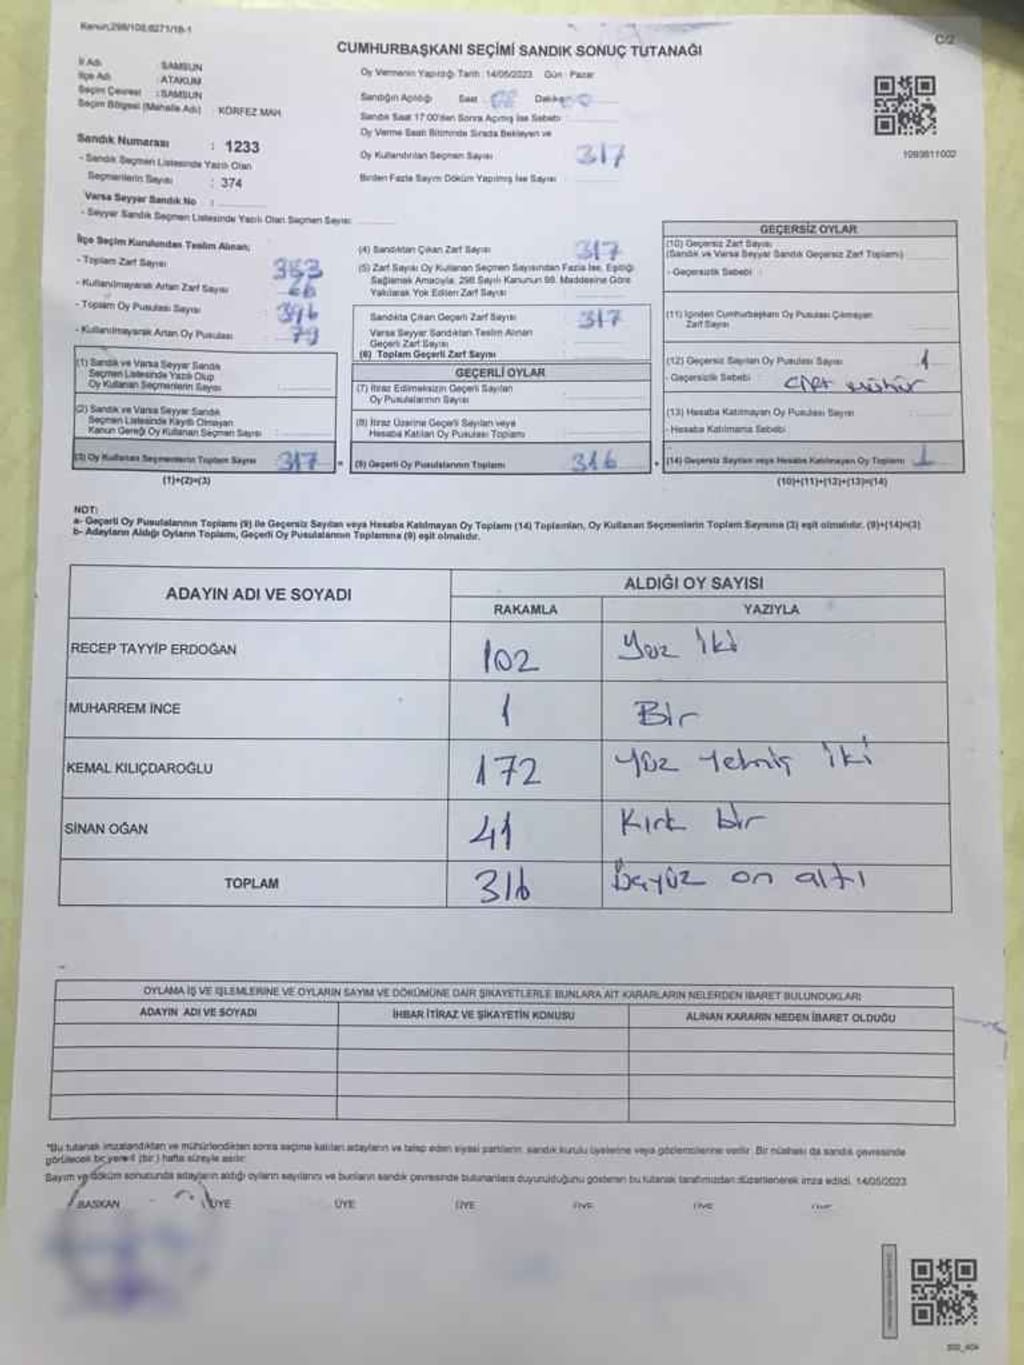 Kanun:298/103,6271/18-1
C/2
CUMHURBAŞKANI SEÇİMİ SANDIK SONUÇ TUTANAĞI
İl Adı : SAMSUN
İlçe Adı : ATAKUM
Seçim Çevresi : SAMSUN
Seçim Bölgesi (Mahalle Adı) : KÖRFEZ MAH
Oy Vermenin Yapıldığı Tarih : 14/05/2023 Gün : Pazar
Sandığın Açıldığı Saat Dakika
Sandık Saat 17:00'den Sonra Açılmış İse Sebebi
Oy Verme Saati Bitiminde Sırada Bekleyen ve
Oy Kullandırılan Seçmen Sayısı 317
Birden Fazla Sayım Döküm Yapılmış İse Sayısı
1093811002
Sandık Numarası : 1233
- Sandık Seçmen Listesinde Yazılı Olan
Seçmenlerin Sayısı : 374
Varsa Seyyar Sandık No :
- Seyyar Sandık Seçmen Listesinde Yazılı Olan Seçmen Sayısı:
İlçe Seçim Kurulundan Teslim Alınan;
- Toplam Zarf Sayısı
- Kullanılmayarak Artan Zarf Sayısı
- Toplam Oy Pusulası Sayısı 396
- Kullanılmayarak Artan Oy Pusulası 79
(1) Sandık ve Varsa Seyyar Sandık
Seçmen Listesinde Yazılı Olup
Oy Kullanan Seçmenlerin Sayısı
(2) Sandık ve Varsa Seyyar Sandık
Seçmen Listesinde Kayıtlı Olmayan
Kanun Gereği Oy Kullanan Seçmen Sayısı
(3) Oy Kullanan Seçmenlerin Toplam Sayısı 317
(1)+(2)=(3)
(4) Sandıktan Çıkan Zarf Sayısı 317
(5) Zarf Sayısı Oy Kullanan Seçmen Sayısından Fazla İse, Eşitliği
Sağlamak Amacıyla, 298 Sayılı Kanunun 98. Maddesine Göre
Yakılarak Yok Edilen Zarf Sayısı
Sandıkta Çıkan Geçerli Zarf Sayısı 317
Varsa Seyyar Sandıktan Teslim Alınan
Geçerli Zarf Sayısı
(6) Toplam Geçerli Zarf Sayısı
GEÇERLİ OYLAR
(7) İtiraz Edilmeksizin Geçerli Sayılan
Oy Pusulalarının Sayısı
(8) İtiraz Üzerine Geçerli Sayılan veya
Hesaba Katılan Oy Pusulası Toplamı
= (9) Geçerli Oy Pusulalarının Toplamı 316
GEÇERSİZ OYLAR
(10) Geçersiz Zarf Sayısı
(Sandık ve Varsa Seyyar Sandık Geçersiz Zarf Toplamı)
- Geçersizlik Sebebi :
(11) İçinden Cumhurbaşkanı Oy Pusulası Çıkmayan
Zarf Sayısı
(12) Geçersiz Sayılan Oy Pusulası Sayısı 1
- Geçersizlik Sebebi : çift mühür
(13) Hesaba Katılmayan Oy Pusulası Sayısı
- Hesaba Katılmama Sebebi
+ (14) Geçersiz Sayılan veya Hesaba Katılmayan Oy Toplamı 1
(10)+(11)+(12)+(13)=(14)
NOT:
a- Geçerli Oy Pusulalarının Toplamı (9) ile Geçersiz Sayılan veya Hesaba Katılmayan Oy Toplamı (14) Toplamları, Oy Kullanan Seçmenlerin Toplam Sayısına (3) eşit olmalıdır. (9)+(14)=(3)
b- Adayların Aldığı Oyların Toplamı, Geçerli Oy Pusulalarının Toplamına (9) eşit olmalıdır.
ADAYIN ADI VE SOYADI
ALDIĞI OY SAYISI
RAKAMLA YAZIYLA
RECEP TAYYİP ERDOĞAN 102 Yüz iki
MUHARREM İNCE 1 Bir
KEMAL KILIÇDAROĞLU 172 Yüz Yetmiş iki
SİNAN OĞAN 41 Kırk bir
TOPLAM 316 üçyüz on altı
OYLAMA İŞ VE İŞLEMLERİNE VE OYLARIN SAYIM VE DÖKÜMÜNE DAİR ŞİKAYETLERLE BUNLARA AİT KARARLARIN NELERDEN İBARET BULUNDUKLARI
ADAYIN ADI VE SOYADI İHBAR İTİRAZ VE ŞİKAYETİN KONUSU ALINAN KARARIN NEDEN İBARET OLDUĞU
*Bu tutanak imzalandıktan ve mühürlendikten sonra seçime katılan adayların ve talep eden siyasi partilerin, sandık kurulu üyelerine veya gözlemcilerine verilir. Bir nüshası da sandık çevresinde
görülecek bir yere 1 (bir) hafta süreyle asılır.
Sayım ve döküm sonucunda adayların aldığı oyların sayılarını ve bunların sandık çevresinde bulunanlara duyurulduğunu gösteren bu tutanak tarafımızdan düzenlenerek imza edildi. 14/05/2023
BAŞKAN ÜYE ÜYE ÜYE ÜYE ÜYE ÜYE